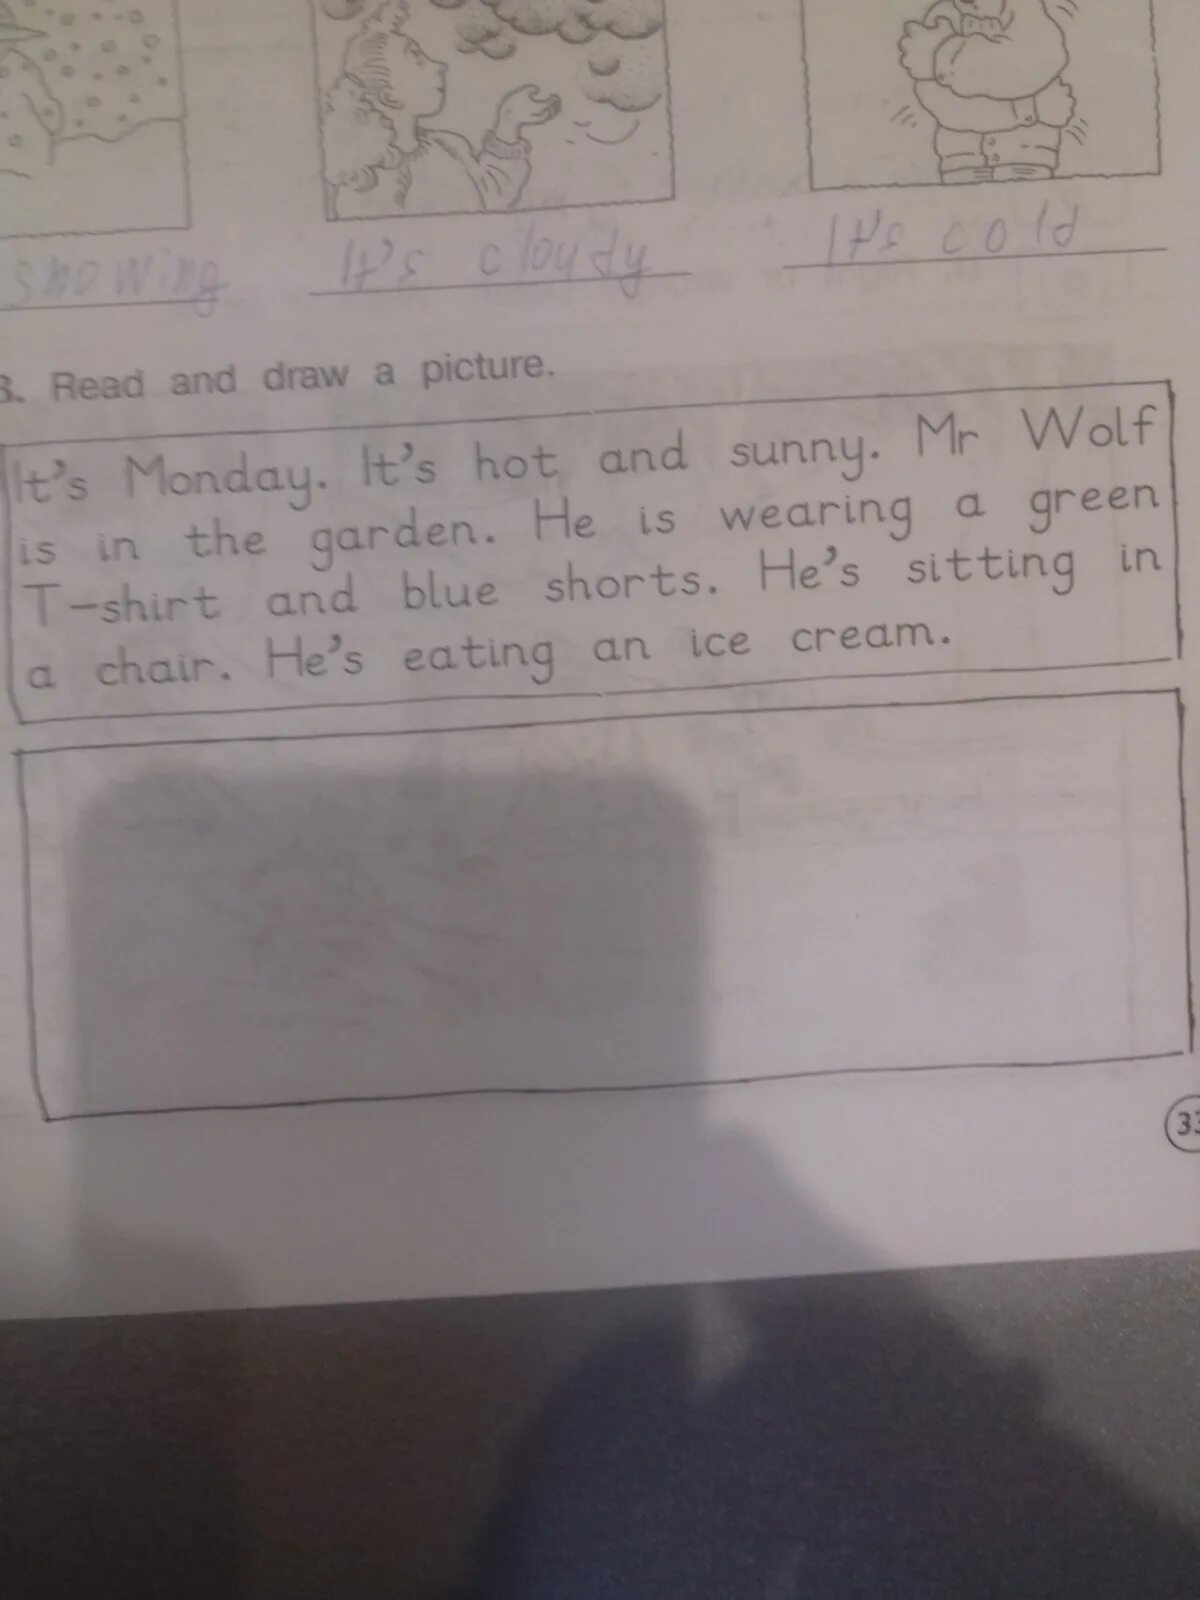 snowing It's cloudy It's cold
3. Read and draw a picture.
It's Monday. It's hot and sunny. Mr Wolf
is in the garden. He is wearing a green
T-shirt and blue shorts. He's sitting in
a chair. He's eating an ice cream.
33